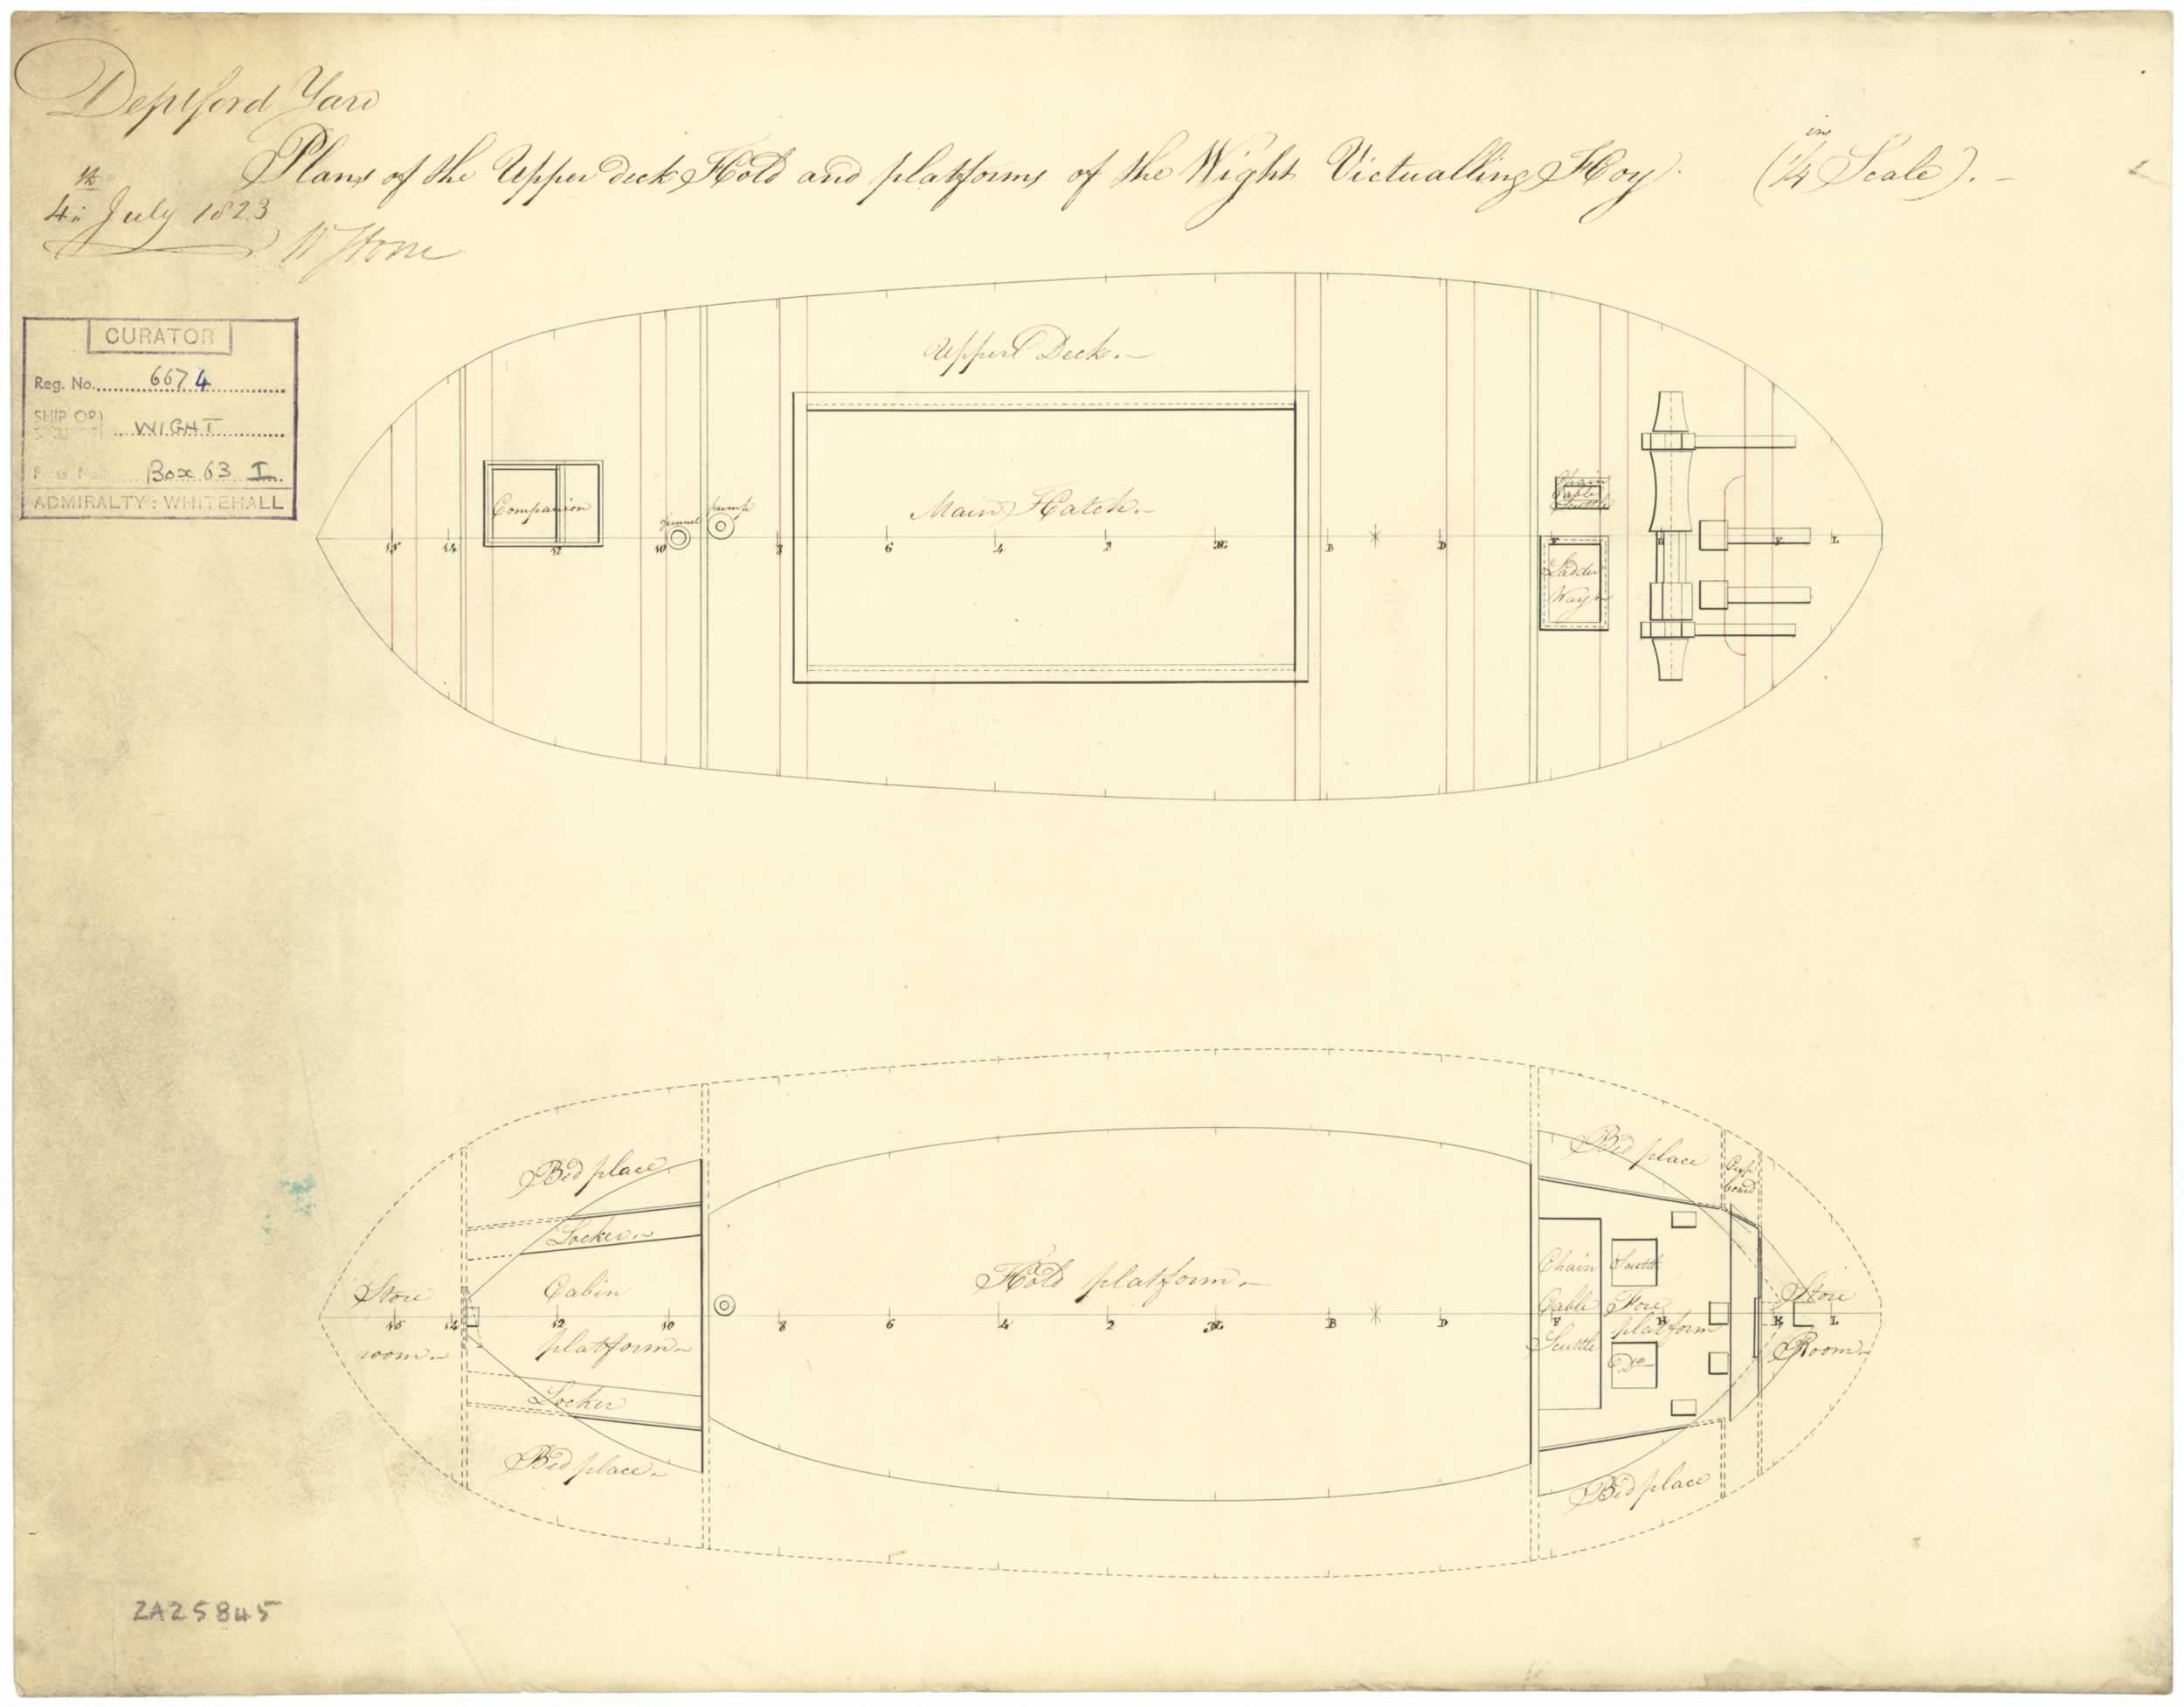 Deptford Yard
Plans of the Upper deck Hold and platforms of the Wight Victualling Hoy. (1/4 in Scale). -
4th July 1823
CURATOR
Reg. No. 6674
SHIP OR
WIGHT
Box 63 I
ADMIRALTY : WHITEHALL
Upper Deck. -
Companion
funnel
pump
Main Hatch. -
Chain
Cable
Scuttle
Ladder
Way
15 14 12 10 8 6 4 2 B D F H K L
Bed place
Bed place
Cup
board
Locker
Store
room
Cabin
platform
Hold platform. -
Chain
Cable
Scuttle
Scuttle
Fore
platform
Do
Store
Room
15 14 12 10 8 6 4 2 B D F H K L
Locker
Bed place
Bed place
ZA25845